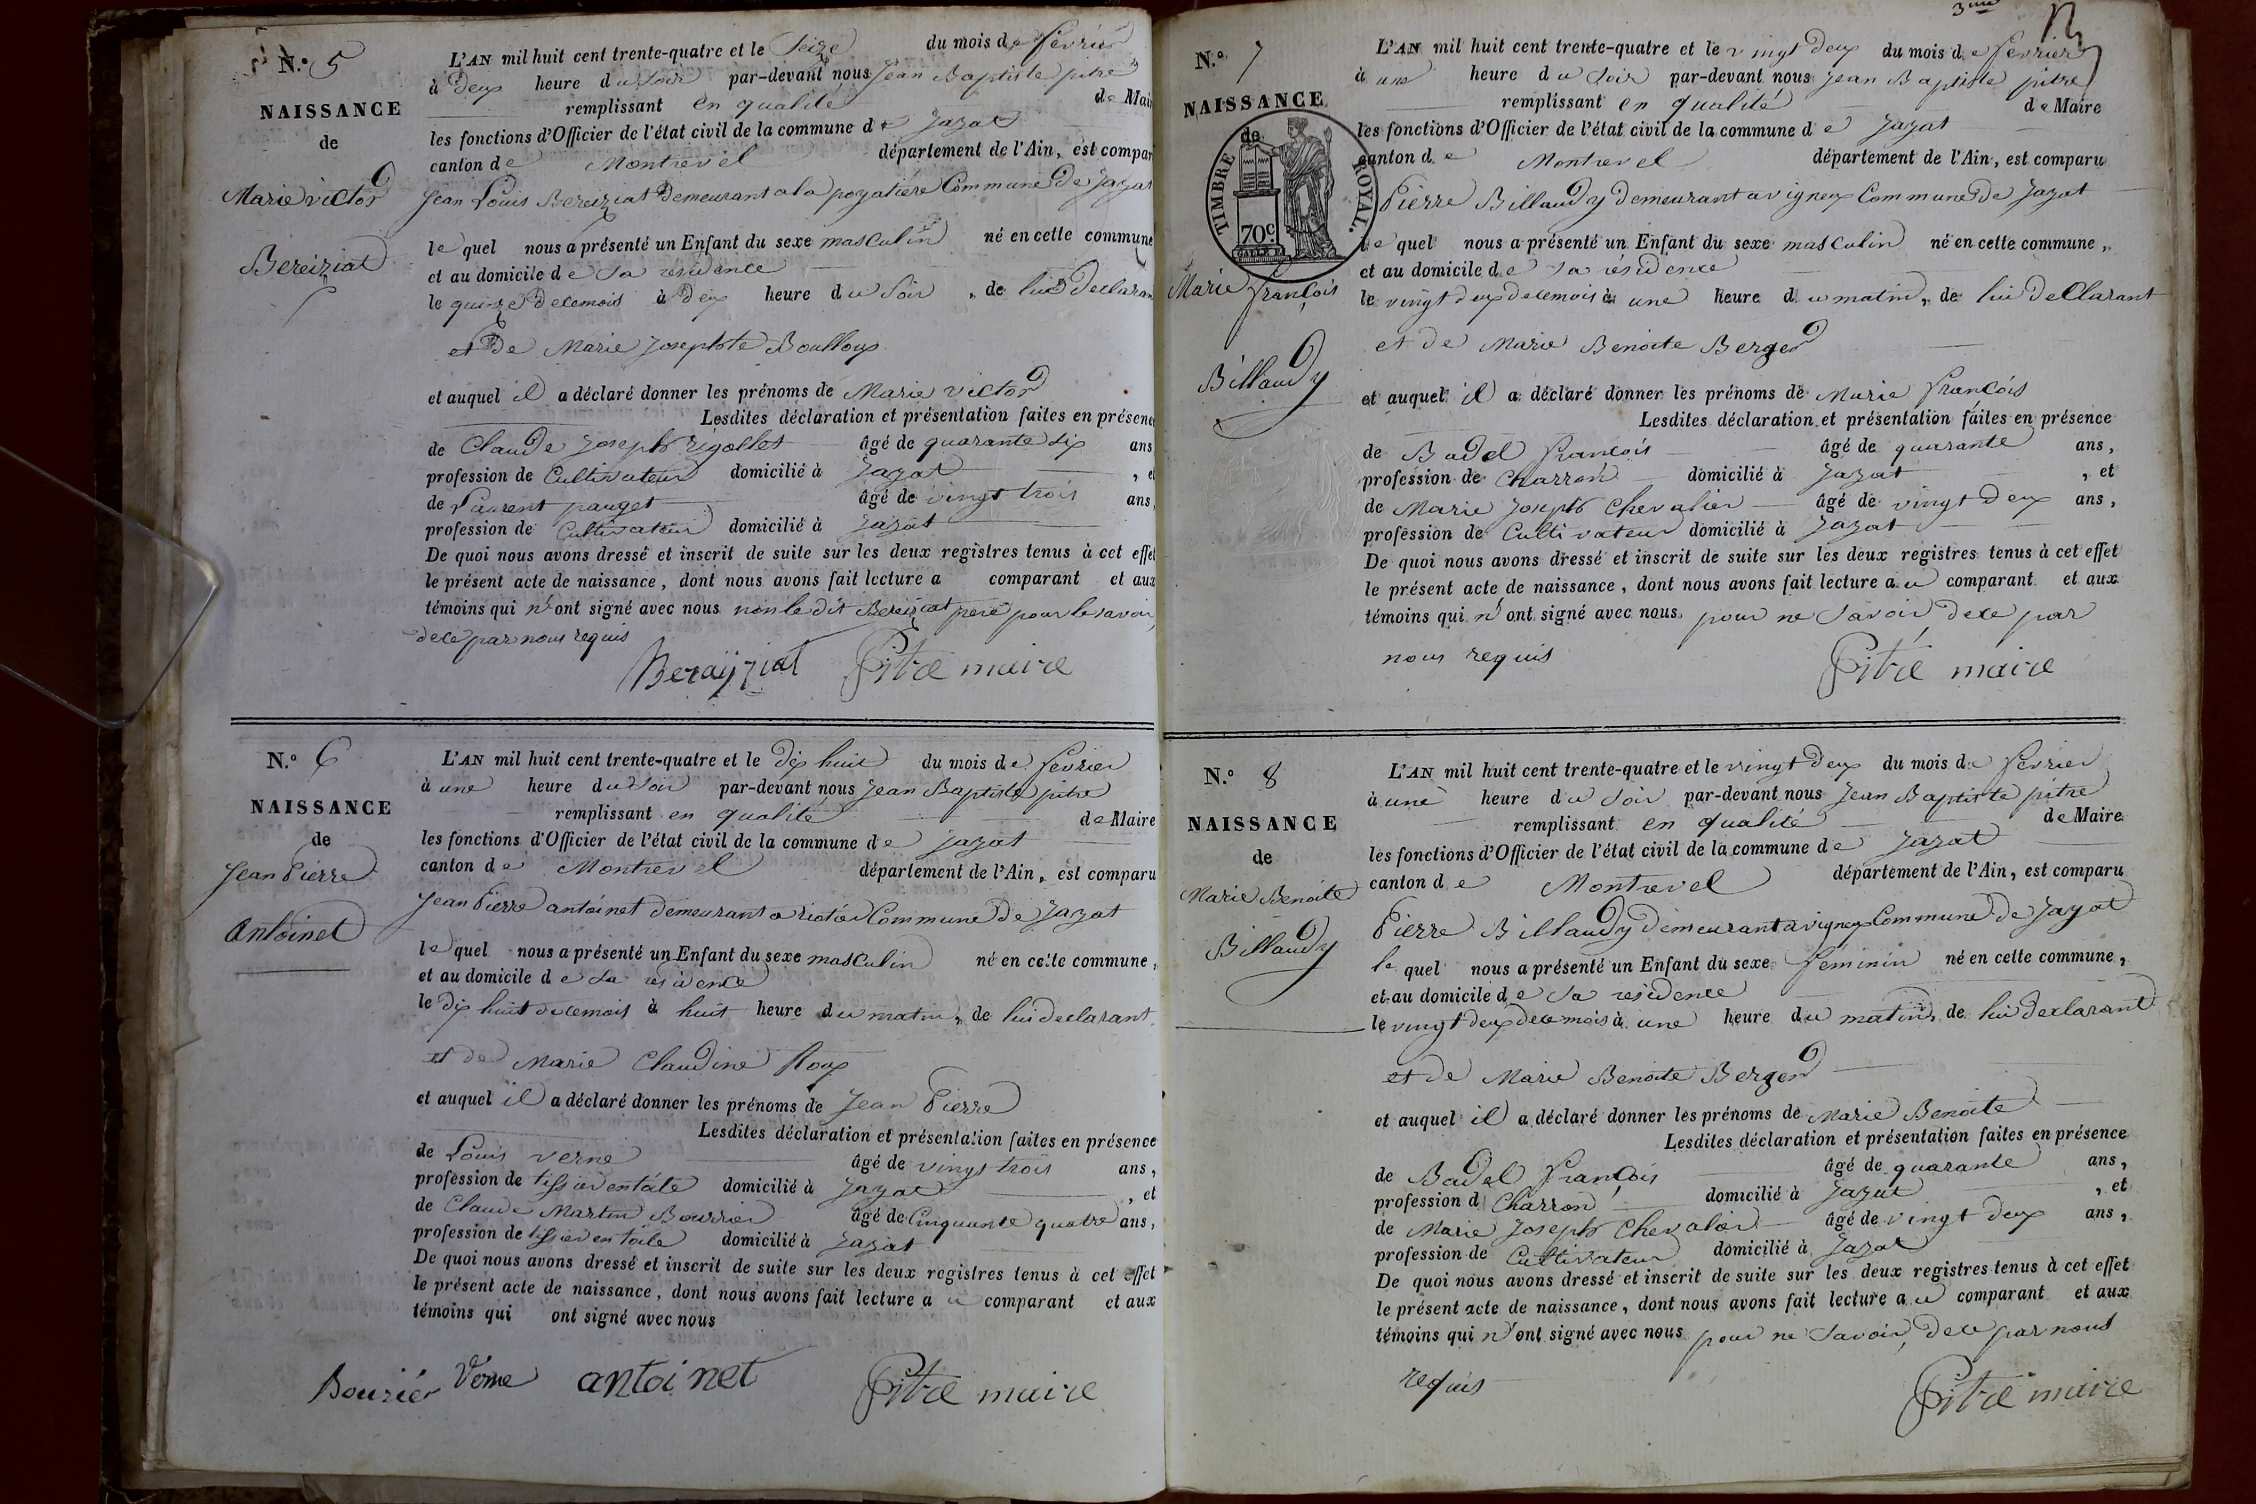 N.° 5
NAISSANCE
de
Marie victor
Bereiziat
L'AN mil huit cent trente-quatre et le Seize du mois de fevrier
à deux heure du Soir par-devant nous Jean Baptiste pitre
remplissant en qualité de Mai
les fonctions d'Officier de l'état civil de la commune de Jayat
canton de Montrevel département de l'Ain, est compar
Jean Louis Bereiziat Demeurant a la poyatière Commune De Jayat
le quel nous a présenté un Enfant du sexe masculin né en cette commune
et au domicile de Sa residence
le quinze de cemois à deux heure du Soir, de lui Declaran
et De Marie Josephte Boulloux
et auquel il a déclaré donner les prénoms de Marie victor
Lesdites déclaration et présentation faites en présenc
de Claude Joseph rigollet âgé de quarante six ans
profession de Cultivateur domicilié à Jayat, e
de Laurent pauget âgé de vingt trois ans,
profession de Cultivateur domicilié à Jayat
De quoi nous avons dressé et inscrit de suite sur les deux registres tenus à cet effet
le présent acte de naissance, dont nous avons fait lecture a comparant et aux
témoins qui n'ont signé avec nous non le dit Bereiziat pere pour le savoir
de ce par nous requis
Berayziat Pitre maire
N.° 6
NAISSANCE
de
Jean Pierre
Antoinet
L'AN mil huit cent trente-quatre et le dix huit du mois de fevrier
à une heure du Soir par-devant nous Jean Baptiste pitre
remplissant en qualité de Maire
les fonctions d'Officier de l'état civil de la commune de jayat
canton de Montrevel département de l'Ain, est comparu
Jean Pierre antoinet demeurant a Commune De Jayat
le quel nous a présenté un Enfant du sexe masculin né en cette commune,
et au domicile de Sa residence
le dix huit de cemois à huit heure du matin, de lui declarant
et de Marie Claudine Roux
et auquel il a déclaré donner les prénoms de Jean Pierre
Lesdites déclaration et présentation faites en présence
de Louis verne âgé de vingt trois ans,
profession de tissier entoile domicilié à Jayat, et
de Claude Martin Bourrier âgé de Cinquante quatre ans,
profession de tissier en toile domicilié à Jayat
De quoi nous avons dressé et inscrit de suite sur les deux registres tenus à cet effet
le présent acte de naissance, dont nous avons fait lecture a u comparant et aux
témoins qui ont signé avec nous
Bourier Verne antoinet Pitre maire
3me
N.° 7
NAISSANCE
de
TIMBRE ROYAL.
70c.
Marie françois
Billaudy
L'AN mil huit cent trente-quatre et le vingt deux du mois de fevrier
à une heure du Soir par-devant nous Jean Baptiste pitre
remplissant en qualité de Maire
les fonctions d'Officier de l'état civil de la commune de Jayat
canton de Montrevel département de l'Ain, est comparu
Pierre Billaudy demeurant a vigneux Commune De Jayat
le quel nous a présenté un Enfant du sexe masculin né en cette commune,
et au domicile de Sa résidence
le vingt deux de cemois à une heure du matin, de lui Declarant
et de Marie Benoite Berger
et auquel il a déclaré donner les prénoms de Marie françois
Lesdites déclaration et présentation faites en présence
de Badel françois âgé de quarante ans,
profession de Charron domicilié à Jayat, et
de Marie Joseph Chevalier âgé de vingt deux ans,
profession de Cultivateur domicilié à Jayat
De quoi nous avons dressé et inscrit de suite sur les deux registres tenus à cet effet
le présent acte de naissance, dont nous avons fait lecture a u comparant et aux
témoins qui n'ont signé avec nous pour ne Savoir de ce par
nous requis
Pitre maire
N.° 8
NAISSANCE
de
Marie Benoite
Billaudy
L'AN mil huit cent trente-quatre et le vingt deux du mois de fevrier
à une heure du Soir par-devant nous Jean Baptiste pitre
remplissant en qualité de Maire
les fonctions d'Officier de l'état civil de la commune de Jayat
canton de Montrevel département de l'Ain, est comparu
Pierre Billaudy demeurant a vigneux Commune De Jayat
le quel nous a présenté un Enfant du sexe feminin né en cette commune,
et au domicile de Sa residence
le vingt deux de ce mois à une heure du matin, de lui declarant
et de Marie Benoite Berger
et auquel il a déclaré donner les prénoms de Marie Benoite
Lesdites déclaration et présentation faites en présence
de Badel françois âgé de quarante ans,
profession d Charron domicilié à Jayat, et
de Marie Joseph Chevalier âgé de vingt deux ans,
profession de Cultivateur domicilié à Jayat
De quoi nous avons dressé et inscrit de suite sur les deux registres tenus à cet effet
le présent acte de naissance, dont nous avons fait lecture a u comparant et aux
témoins qui n'ont signé avec nous pour ne Savoir, de ce par nous
requis
Pitre maire